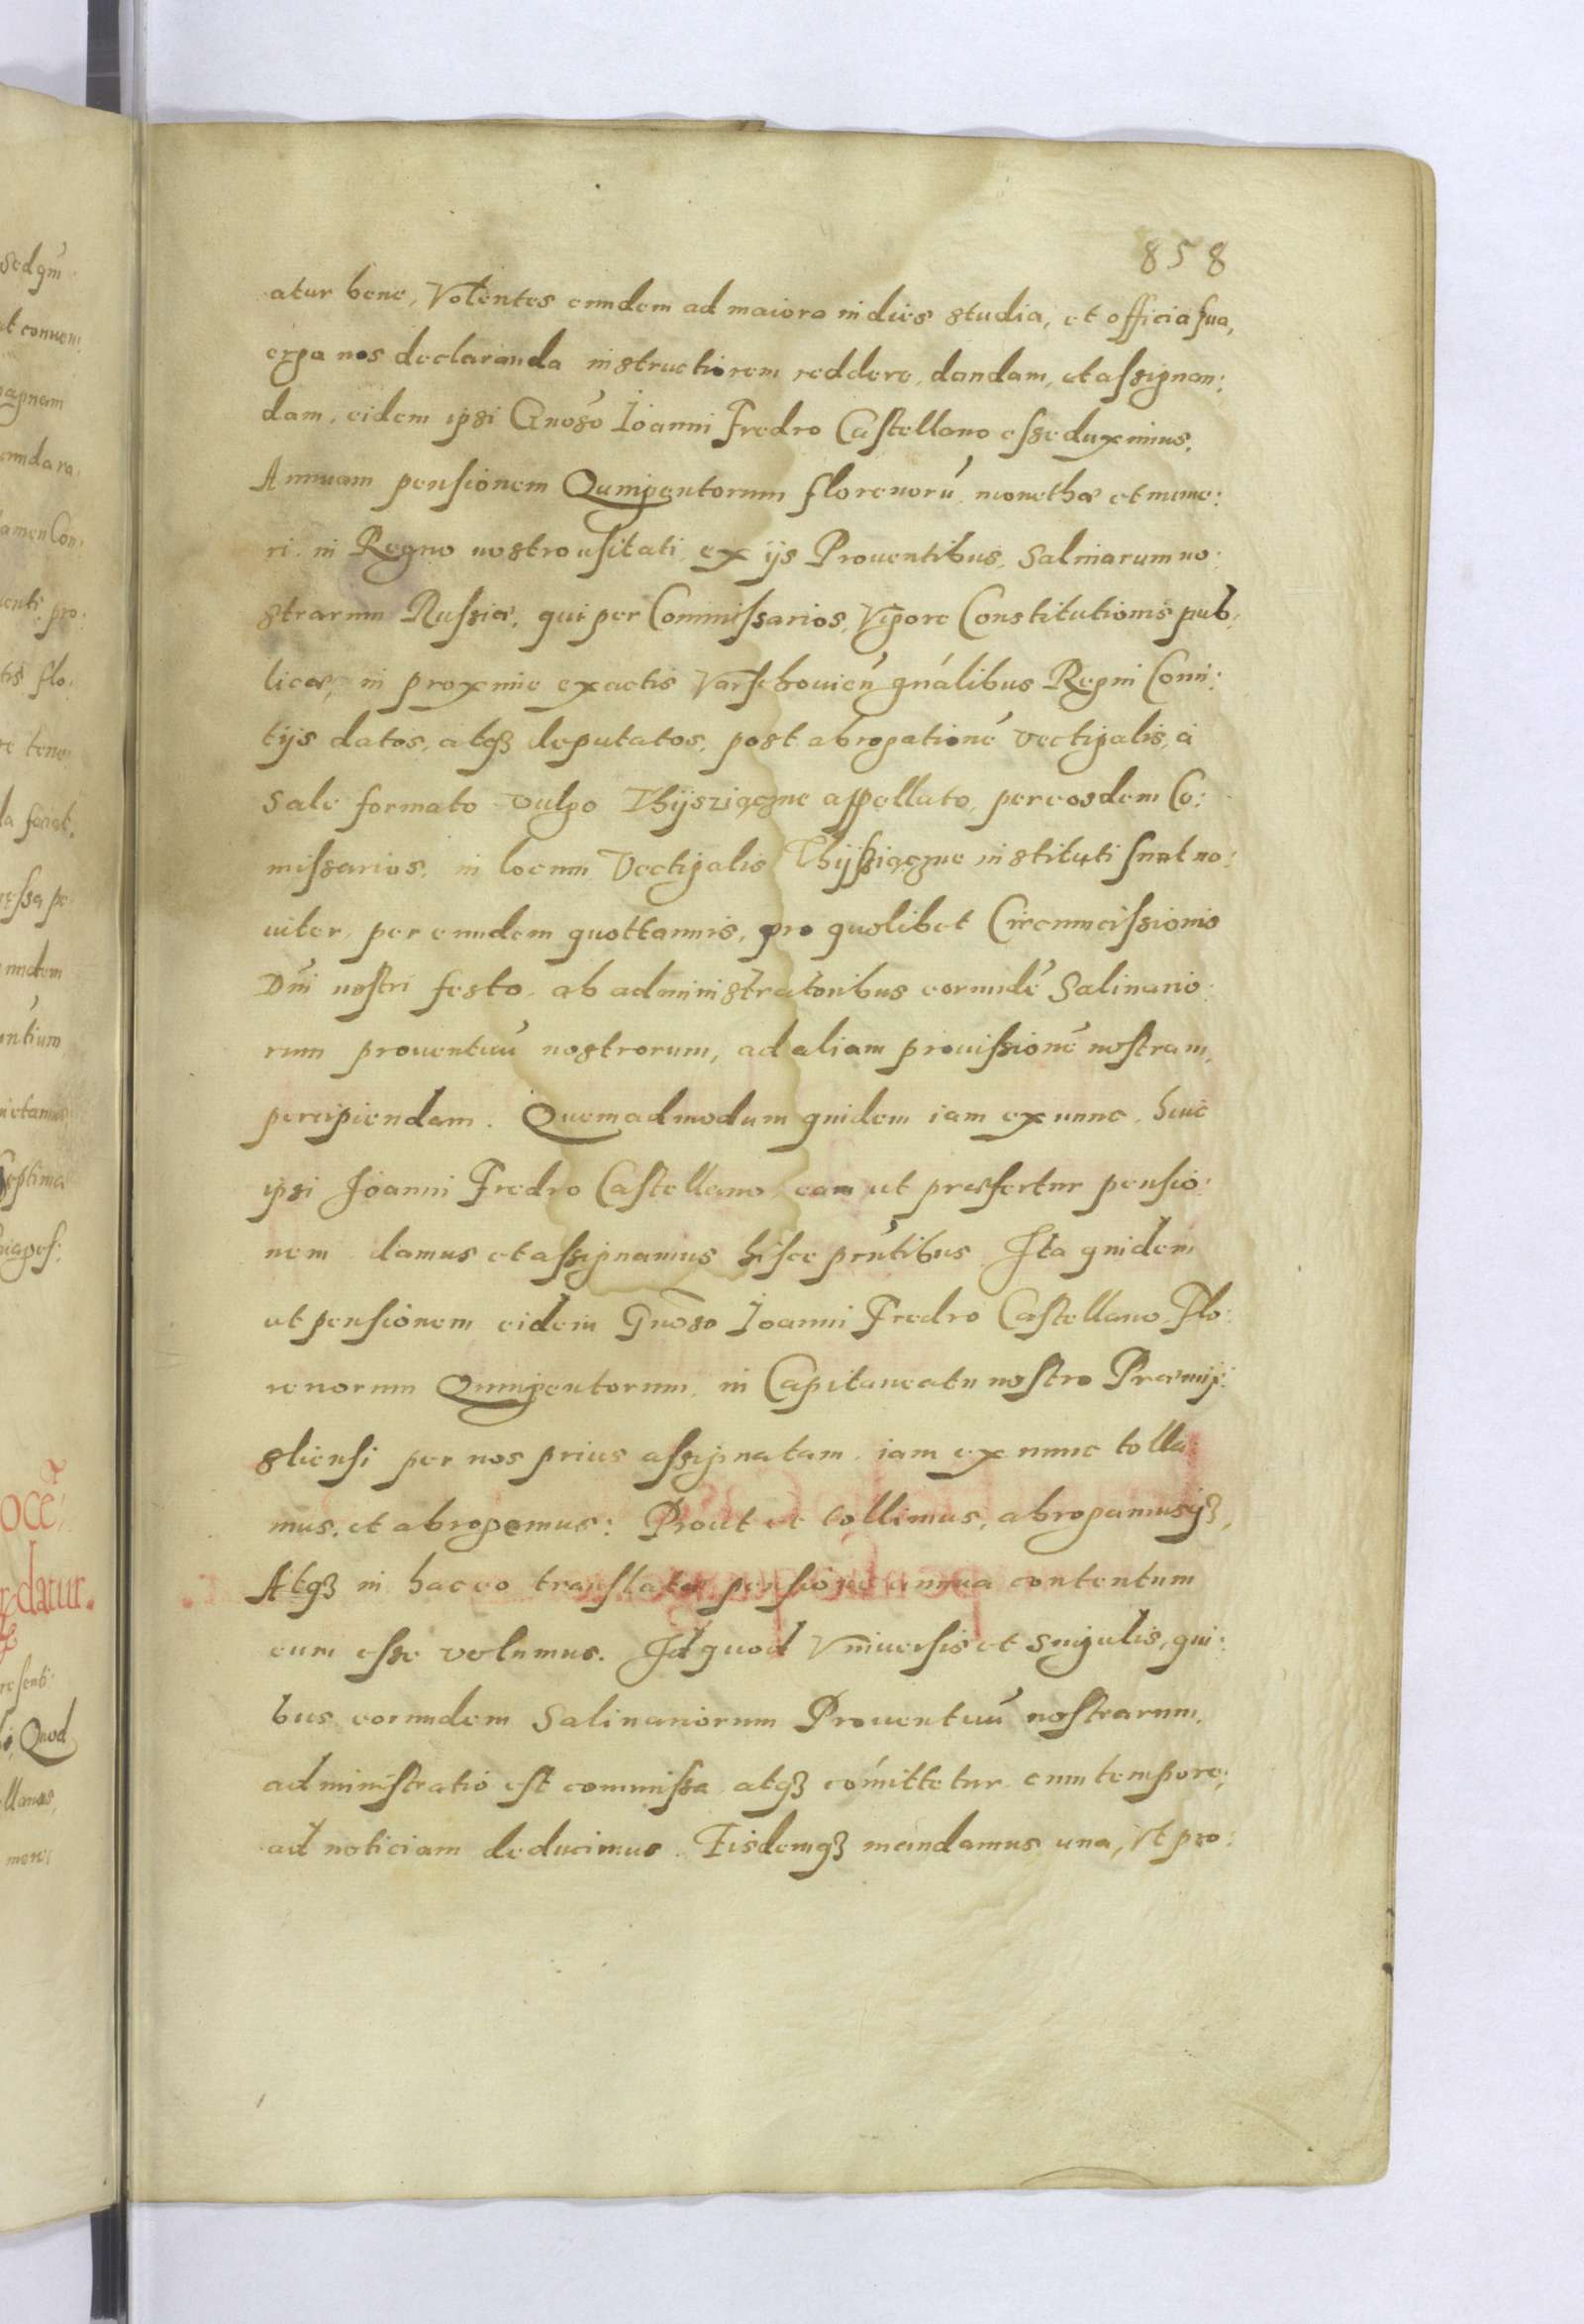 858
atur bene, Volentes eundem ad maiora in dies studia, et officia sua,
erga nos declaranda instructiorem reddere, dandam, et assignan:
dam, eidem ipsi Gnoso Ioanni Fredro Castellano esse duximus.
Annuam pensionem Quingentorum florenorū monethæ et nume:
ri in Regno nostro usitati ex ijs Prouentibus Salinarum no:
strarum Russiæ, qui per Commissarios, Vigore Constitutionis pub:
licæ, in proxime exactis Varschouien̄ gnālibus Regni Comi:
tijs datos, atqꝫ deputatos, post abrogationē vectigalis, a
Sale formato vulgo Thysziączne appellato, per eosdem Co:
missarios, in locum Vectigalis Thysziączne instituti sunt no:
uiter, per eundem quottannis, pro quolibet Circumcissionis
Dn̄i nostri festo, ab administratoribus eorundē Salinario:
rum prouentuū nostrorum, ad aliam prouissionē nostram,
percipiendam. Quemadmodum quidem iam ex nunc, huic
ipsi Joanni Fredro Castellano, eam ut præfertur pensio:
nem damus et assignamus hisce prn̄tibus. Ita quidem
ut pensionem eidem Gnoso Ioanni Fredro Castellano Flo:
renorum Quingentorum, in Capitaneatu nostro Præmij:
sliensi per nos prius assignatam, iam ex nunc tolla:
mus, et abrogemus: Prout et tollimus, abrogamusqꝫ,
Atqꝫ in hac eo translata pensione annua contentum
eum esse volumus. Id quod Vniuersis et Singulis, qui:
bus eorundem Salinariorum Prouentuū nostrarum,
administratio est commissa atqꝫ com̄ittetur cum tempore;
ad noticiam deducimus. Eisdemqꝫ mandamus una, vt pro: